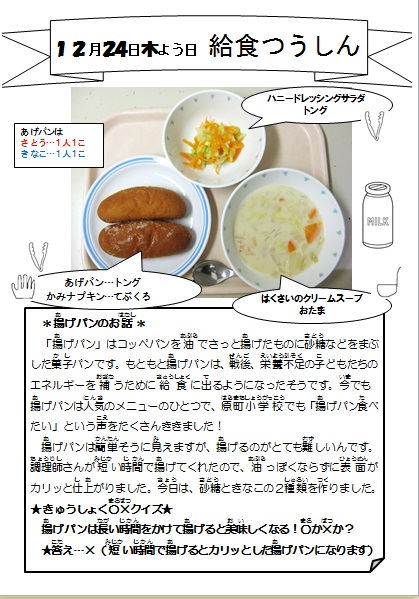 12月24日木よう日 給食つうしん
ハニードレッシングサラダ
トング
あげパンは
さとう…1人1こ
きなこ…1人1こ
MILK
あげパン…トング
かみナプキン…てぶくろ
はくさいのクリームスープ
おたま
＊揚げパンのお話＊
「揚げパン」はコッペパンを油でさっと揚げたものに砂糖などをまぶ
した菓子パンです。もともと揚げパンは、戦後、栄養不足の子どもたちの
エネルギーを補うために給食に出るようになったそうです。今でも
揚げパンは人気のメニューのひとつで、原町小学校でも「揚げパン食べ
たい」という声をたくさんききました！
揚げパンは簡単そうに見えますが、揚げるのがとても難しいんです。
調理師さんが短い時間で揚げてくれたので、油っぽくならずに表面が
カリッと仕上がりました。今日は、砂糖ときなこの2種類を作りました。
★きゅうしょく〇×クイズ★
揚げパンは長い時間をかけて揚げると美味しくなる！〇か×か？
★答え…×（短い時間で揚げるとカリッとした揚げパンになります）